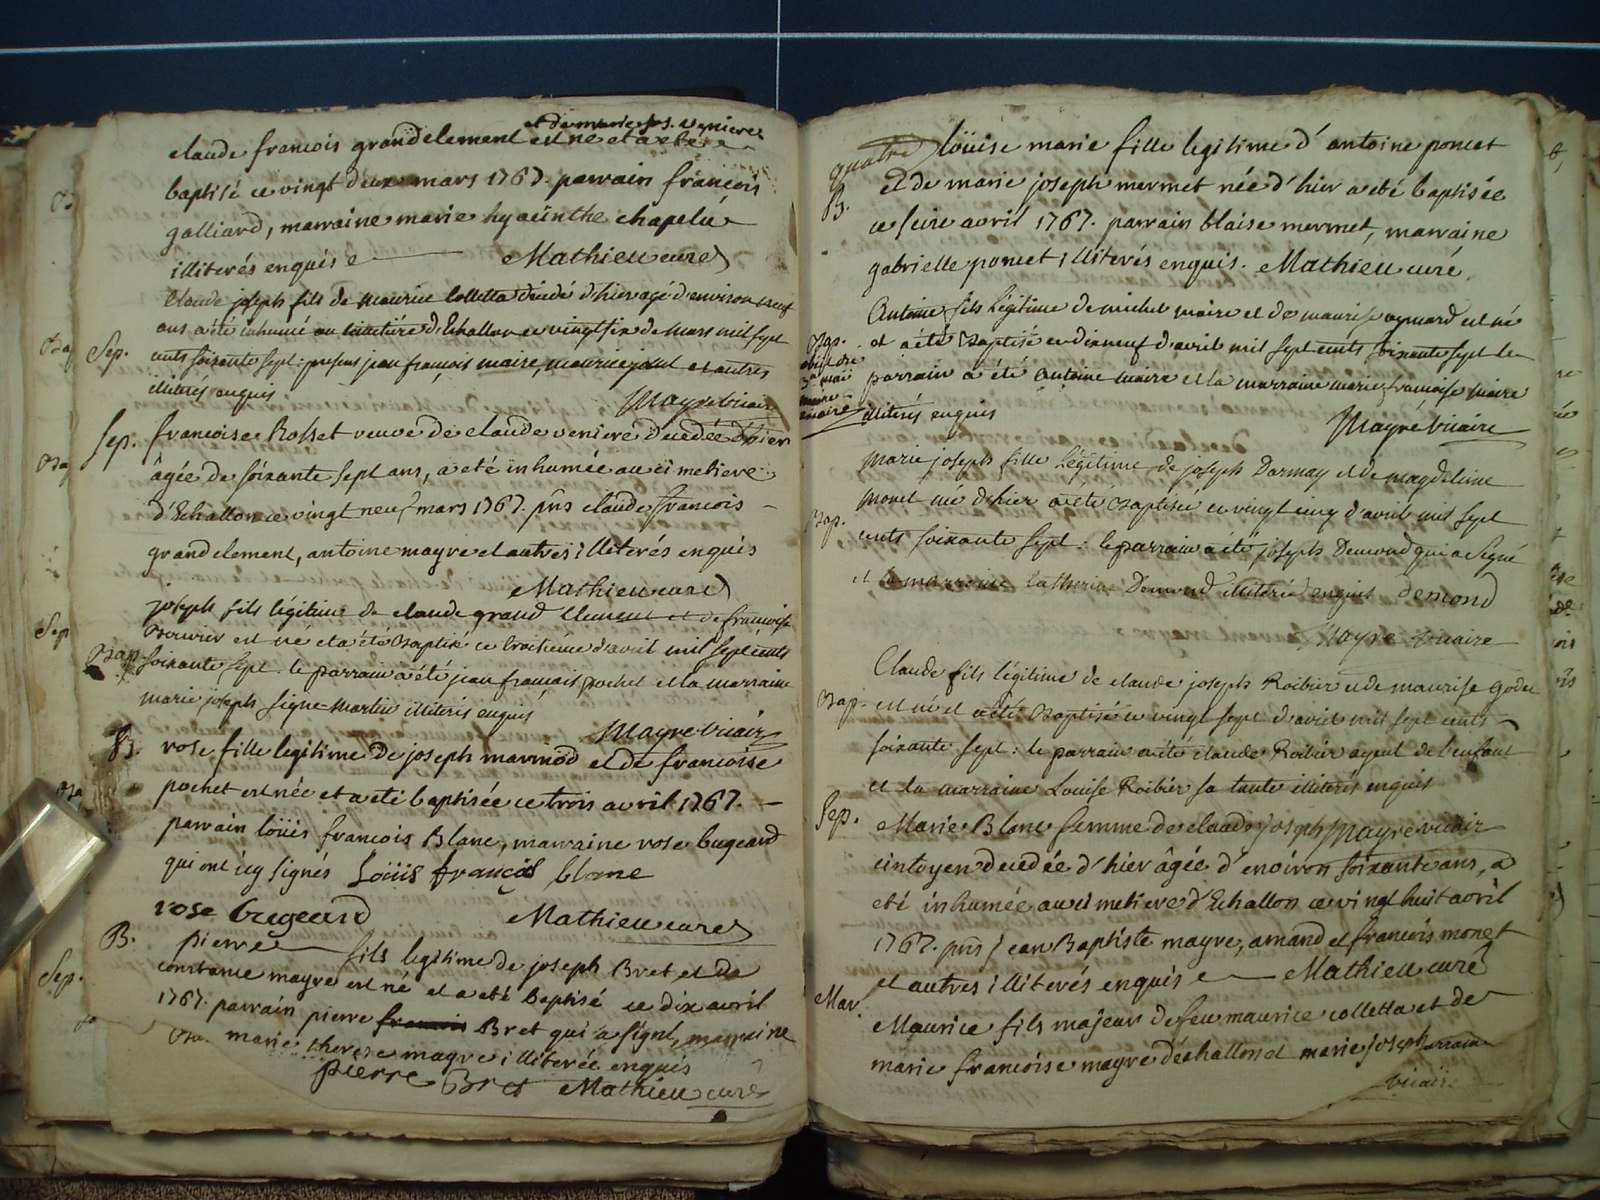 et de marie jos. veniere
claude francois grandclement est né et a eté
baptisé ce vingt deux mars 1767. parrain francois
galliard, marraine marie hyacinthe chapelu
illiterés enquis e Mathieu curé
Sep. Claude joseph fils de maurice Colletta décédé d'hier agé d'environ neuf
ans a été inhumé au cimetière d'Echallon ce vingt six de mars mil sept
cents soixante sept: présens jean françois maire, maurice et autres
illiterés enquis. Mayre vicaire
Sep. francoise Rosset veuve de claude veniere decedée d'hier
âgée de soixante sept ans, a eté inhumée au cimetiere
d'Echallon ce vingt neuf mars 1767. pñs claude francois
grandclement, antoine mayre et autres illiterés enquis
Mathieu curé
joseph fils légitime de claude grand Clement et de francoise
Bouvier est né et a été Baptisé ce troisième d'avril mil sept cents
Bap. soixante sept. le parrain a été jean francois pochet et la marraine
marie joseph signe martin illiterés enquis
Mayre vicair
B. rose fille legitime de joseph marmod et de francoise
pochet est née et a eté baptisée ce trois avril 1767.
parrain loüis francois Blanc, marraine rose bugeard
qui ont icy signés Loüis françois blanc
rose bugeard Mathieu curé
B. pierre fils legitime de joseph Bret et de
constance mayre est né et a eté baptisé ce dix avril
1767. parrain pierre francois Bret qui a signé, marraine
marie therese mayre illiterée enquis
pierre Bret Mathieu curé
quatre loüise marie fille legitime d'antoine poncet
B. et de marie joseph mermet née d'hier a eté baptisée
ce seize avril 1767. parrain blaise mermet, marraine
gabrielle poncet illiterés enquis. Mathieu curé
Antoine fils légitime de michel maire et de maurise aymard est né
Bap. et a été Baptisé ce dixneuf d'avril mil sept cents soixante sept le
obiit die
3a maii
parrain a été antoine maire et la marraine marie francoise maire
maire
illiterés enquis
Mayre vicaire
marie joseph fille légitime de joseph Darmay et de magdeleine
Bap. monet née d'hier a été Baptisée ce vingt cinq d'avril mil sept
cents soixante sept: le parrain a été joseph Demond qui a signé
et la marraine Catherine Demond illiterée enquis demond
Mayre vicaire
Claude fils légitime de claude joseph Roibier et de maurise godet
Bap. est né et a été Baptisé ce vingt sept d'avril mil sept cents
soixante sept: le parrain a été claude Roibier ayeul de l'enfant
et la marraine Louise Roibier sa tante illiterés enquis
Mayre vicair
Sep. Marie Blanc femme de claude joseph
cintoyen decedée d'hier âgée d'environ soixante ans, a
eté inhumée au cimetiere d'Echallon ce vingt huit avril
1767. pñs jean Baptiste mayre, amand et francois monet
et autres illiterés enquis e Mathieu curé
Mar. Maurice fils majeur de feu maurice colletta et de
marie francoise mayre d'échallon et marie joseph
vicaire